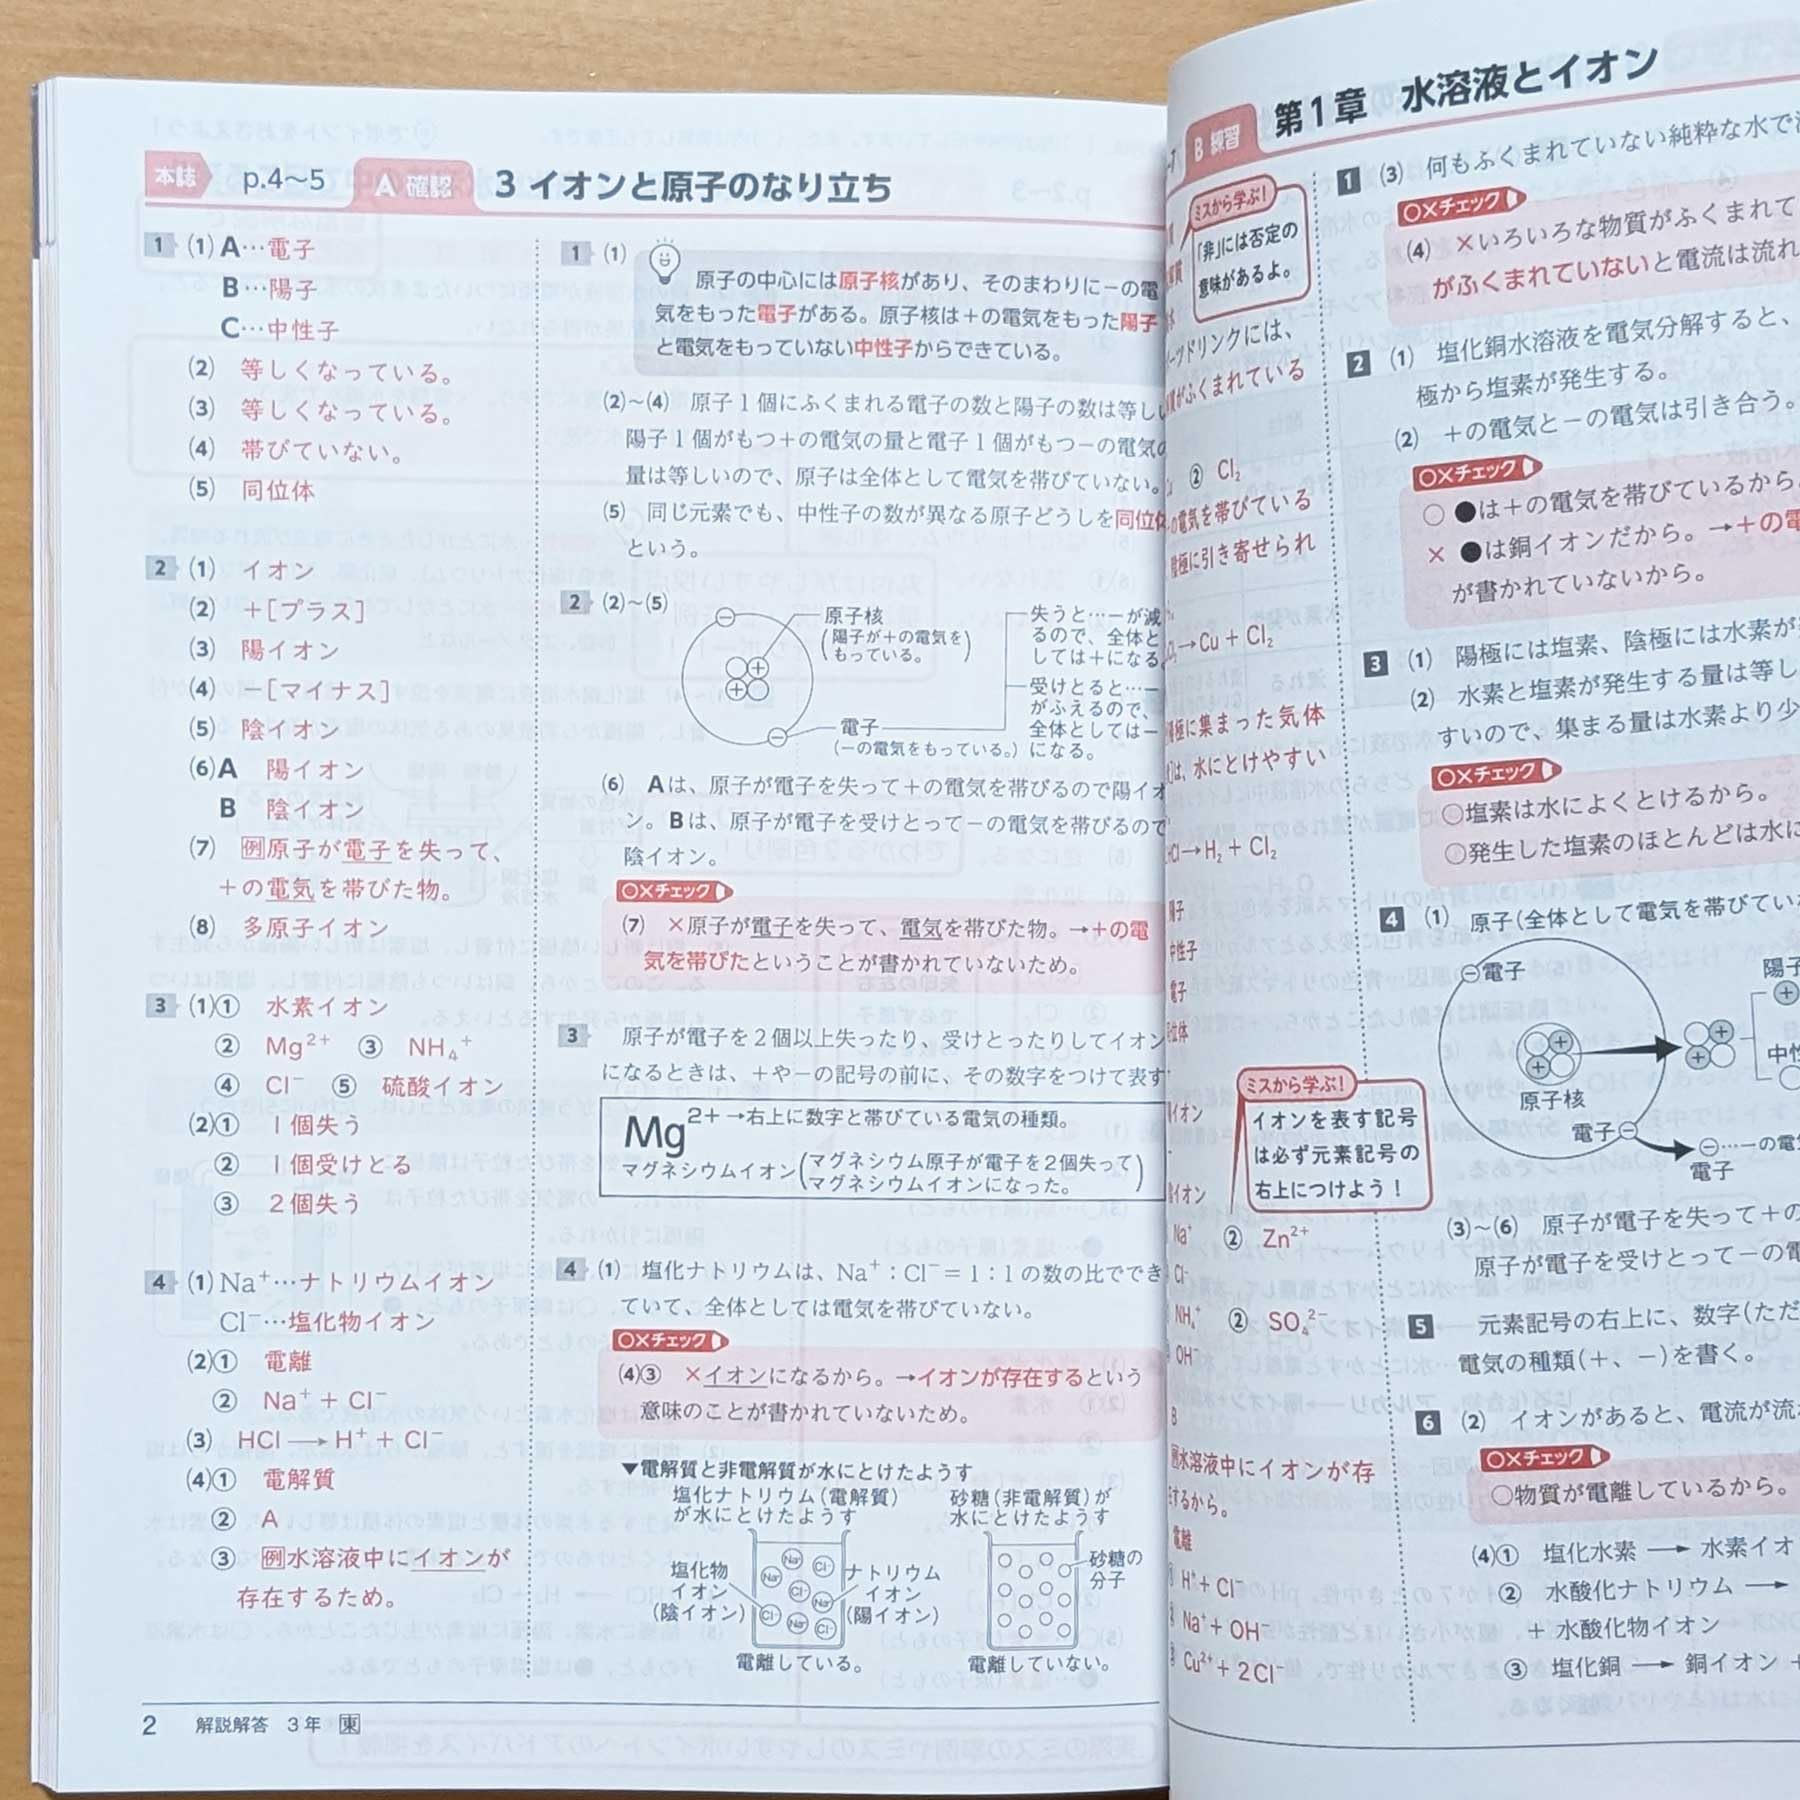 本誌 p.4〜5 A 確認 3 イオンと原子のなり立ち
1 (1) A…電子
B…陽子
C…中性子
(2) 等しくなっている。
(3) 等しくなっている。
(4) 帯びていない。
(5) 同位体
2 (1) イオン
(2) ＋[プラス]
(3) 陽イオン
(4) －[マイナス]
(5) 陰イオン
(6) A 陽イオン
B 陰イオン
(7) 例 原子が電子を失って、
＋の電気を帯びた物。
(8) 多原子イオン
3 (1)① 水素イオン
② Mg²⁺ ③ NH₄⁺
④ Cl⁻ ⑤ 硫酸イオン
(2)① 1個失う
② 1個受けとる
③ 2個失う
4 (1) Na⁺…ナトリウムイオン
Cl⁻…塩化物イオン
(2)① 電離
② Na⁺ + Cl⁻
(3) HCl → H⁺ + Cl⁻
(4)① 電解質
② A
③ 例 水溶液中にイオンが
存在するため。
1 (1) 原子の中心には原子核があり、そのまわりに－の電
気をもった電子がある。原子核は＋の電気をもった陽子
と電気をもっていない中性子からできている。
(2)〜(4) 原子1個にふくまれる電子の数と陽子の数は等し
陽子1個がもつ＋の電気の量と電子1個がもつ－の電気の
量は等しいので、原子は全体として電気を帯びていない。
(5) 同じ元素でも、中性子の数が異なる原子どうしを同位体
という。
2 (2)〜(5)
原子核
(陽子が＋の電気を
もっている。)
電子
(－の電気をもっている。)
失うと…－が減
るので、全体と
しては＋になる
受けとると…－
がふえるので、
全体としては－
になる。
(6) Aは、原子が電子を失って＋の電気を帯びるので陽イオ
ン。Bは、原子が電子を受けとって－の電気を帯びるので
陰イオン。
○×チェック
(7) ×原子が電子を失って、電気を帯びた物。→＋の電
気を帯びたということが書かれていないため。
3 原子が電子を2個以上失ったり、受けとったりしてイオン
になるときは、＋や－の記号の前に、その数字をつけて表す
Mg²⁺→右上に数字と帯びている電気の種類。
マグネシウムイオン(マグネシウム原子が電子を2個失って
マグネシウムイオンになった。)
4 (1) 塩化ナトリウムは、Na⁺：Cl⁻＝1：1の数の比ででき
ていて、全体としては電気を帯びていない。
○×チェック
(4)③ ×イオンになるから。→イオンが存在するという
意味のことが書かれていないため。
▼電解質と非電解質が水にとけたようす
塩化ナトリウム(電解質)
が水にとけたようす
塩化物
イオン
(陰イオン)
Na⁺ Cl⁻
Na⁺
Cl⁻
Na⁺
Cl⁻
Na⁺ Cl⁻
ナトリウム
イオン
(陽イオン)
電離している。
砂糖(非電解質)が
水にとけたようす
砂糖の
分子
電離していない。
2 解説解答 3年 東
B 練習 第1章 水溶液とイオン
ミスから学ぶ!
「非」には否定の
意味があるよ。
ーツドリンクには、
がふくまれている
② Cl₂
の電気を帯びている
陰極に引き寄せられ
→Cu + Cl₂
極に集まった気体
は、水にとけやすい
→H₂ + Cl₂
陽子
中性子
電子
位体
ミスから学ぶ!
イオンを表す記号
は必ず元素記号の
右上につけよう!
イオン
イオン
Na⁺ ② Zn²⁺
Cl⁻
NH₄⁺ ② SO₄²⁻
OH⁻
B
例 水溶液中にイオンが存
するから。
電離
H⁺ + Cl⁻
Na⁺ + OH⁻
Cu²⁺ + 2Cl⁻
1 (3) 何もふくまれていない純粋な水で
○×チェック
(4) ×いろいろな物質がふくまれて
がふくまれていないと電流は流れ
2 (1) 塩化銅水溶液を電気分解すると、
極から塩素が発生する。
(2) ＋の電気と－の電気は引き合う。
○×チェック
○ ●は＋の電気を帯びているから。
× ●は銅イオンだから。→＋の電
が書かれていないから。
3 (1) 陽極には塩素、陰極には水素が
(2) 水素と塩素が発生する量は等し
すいので、集まる量は水素より少
○×チェック
○塩素は水によくとけるから。
○発生した塩素のほとんどは水に
4 (1) 原子(全体として電気を帯びてい
電子
原子核
電子
陽子
中性
－…－の電
電子
(3)〜(6) 原子が電子を失って＋の
原子が電子を受けとって－の電
5 元素記号の右上に、数字(ただ
電気の種類(＋、－)を書く。
6 (2) イオンがあると、電流が流
○×チェック
○物質が電離しているから。
(4)① 塩化水素 → 水素イオ
② 水酸化ナトリウム →
＋ 水酸化物イオン
③ 塩化銅 → 銅イオン ＋